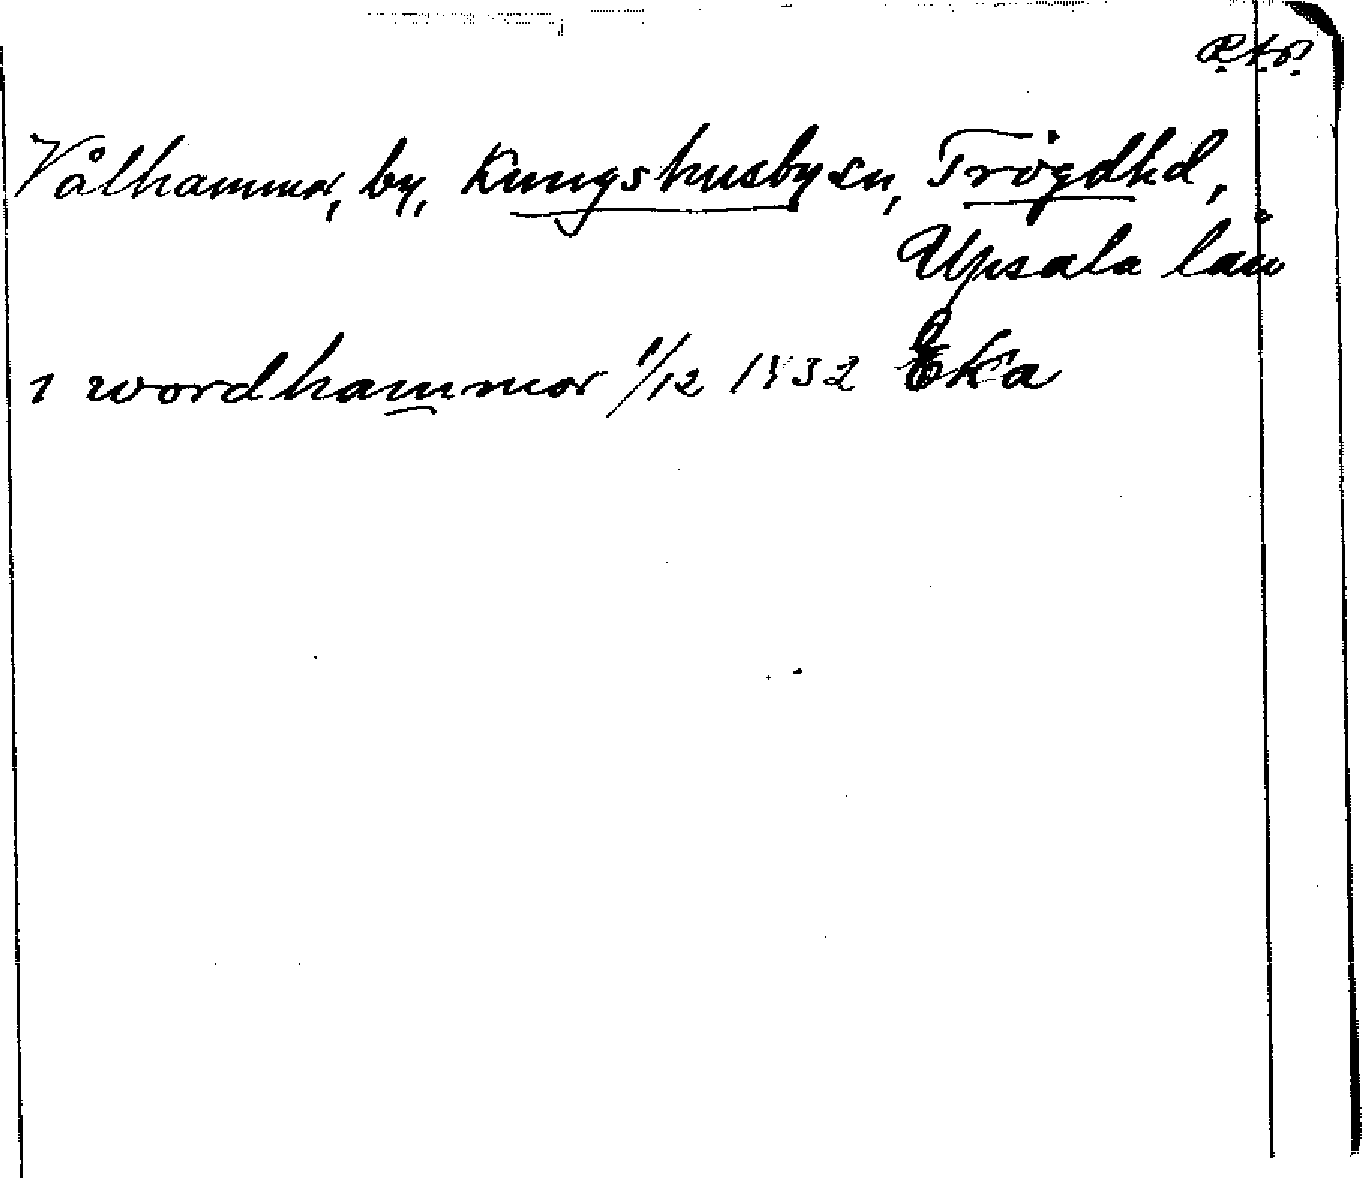 R.A.P.
Vålhammar, by, Kungshusby sn, Trögdhd,
Upsala län
i wordhammor 1/12 1532 Eka